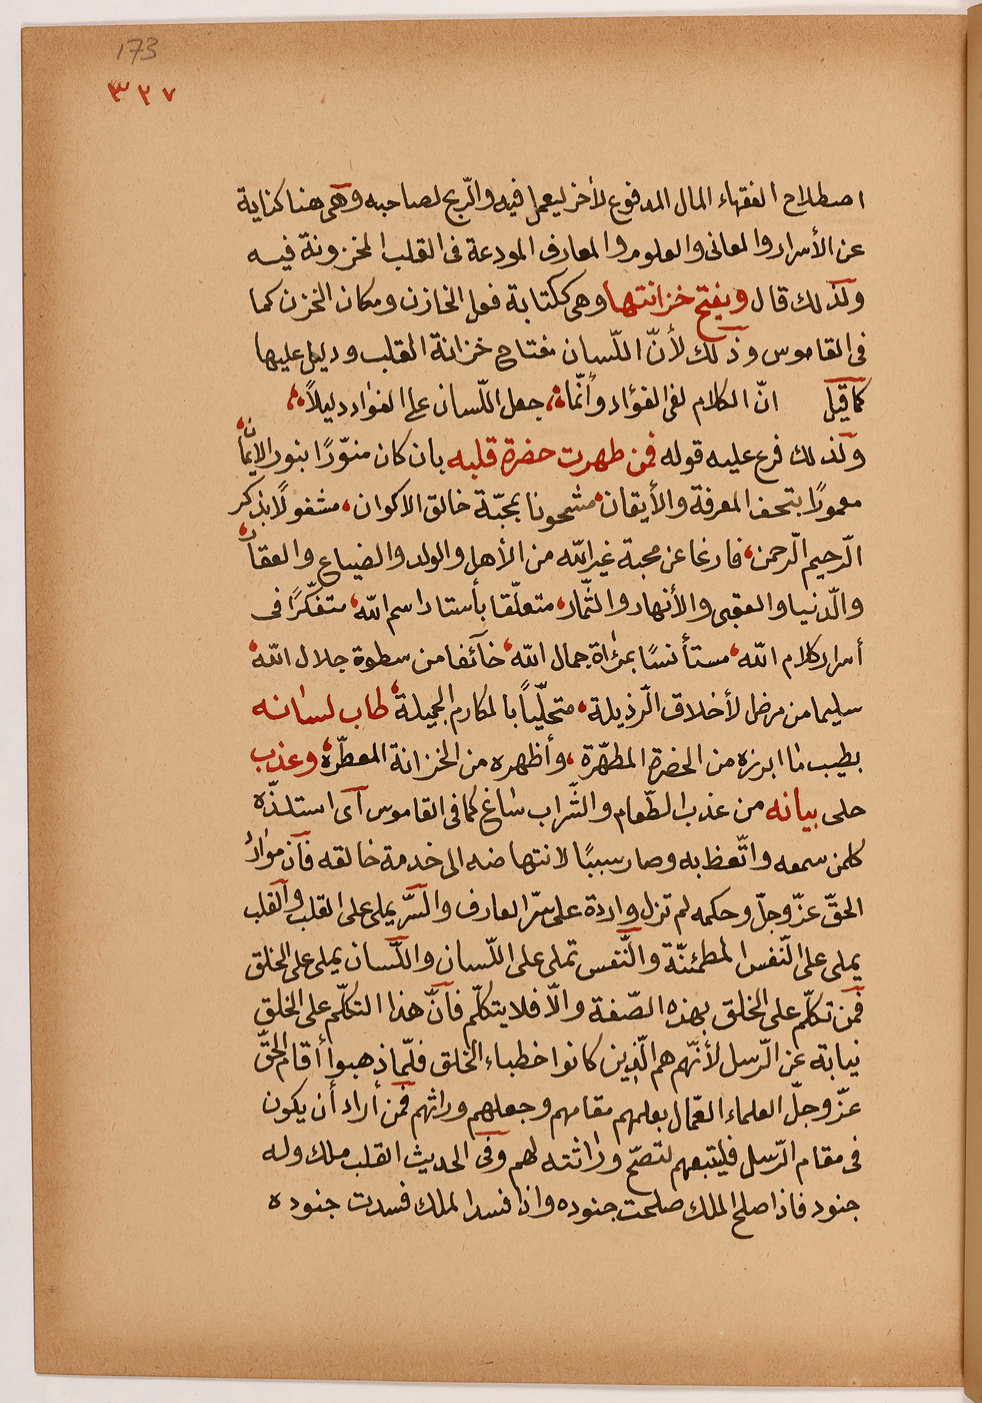 173
٣٢٧
اصطلاح الفقهاء المال المدفوع لأخر ليعمل فيه والرّبح لصاحبه وهى هنا كناية
عن الأسرار والمعانى والعلوم والمعارف المودعة فى القلب المخزونة فيه
ولذلك قال ويفتح خزانتها وهى ككتابة فعل الخازن ومكان الخزن كما
فى القاموس وذلك لأنّ اللّسان مفتاح خزانة القلب ودليل عليها
كما قيل انّ الكلام لفى الفؤاد وأنّما، جعل اللّسان على الفواد دليلاً،
ولذلك فرع عليه قوله فمن طهرت حضرة قلبه بان كان منوّرًا بنور الإيمان،
معمورًا بتحف المعرفة والأيقان، مشحونا بمحبّة خالق الاكوان، مشغولًا بذكر
الرّحيم الرّحمن، فارغا عن محبة غير الله من الأهل والولد والضياع والعقار،
والدّنيا والعقبى والأنهار والثّمار، متعلّقا بأستار اسم الله، متفكّرًا فى
أسرار كلام الله، مستأنسًا بمرٰاة جمال الله، خآئفا من سطوة جلال الله،
سليما من مرض الأخلاق الرّذيلة، متحلّياً بالمكارم الجميلة، طاب لسانه
بطيب ما ابرزه من الحضرة المطهّرة، وأظهره من الخزانة المعطّرة، وعذب
حلى بيانه من عذب الطّعام والشّراب ساغ كما فى القاموس آى استلذّه
كلمن سمعه واتّعظ به وصار سببًا لانتهاضه الى خدمة خالقه فآن موادّ
الحقّ عزّ وجلّ وحكمه لم تزل واردة على سرّ العارف والسّر يملى على القلب والقلب
يملى على النّفس المطمئنّة والنّفس تملى على اللّسان واللّسان يملى على الخلق
فمن تكلّم على الخلق بهذه الصّفة والّا فلا يتكلّم فآنّ هذا التكلّم على الخلق
نيابة عن الرّسل لأنّهم هم الّذين كانوا خطباء الخلق فلمّا ذهبوا أقام الحقّ
عزّ وجلّ العلماء العمّال بعلمهم مقامهم وجعلهم وراثهم فمن أراد أن يكون
فى مقام الرّسل فليتبعهم لتصحّ ورٰاثته لهم وفى الحديث القلب ملك وله
جنود فاذا صلح الملك صلحت جنوده واذا فسد الملك فسدت جنوده